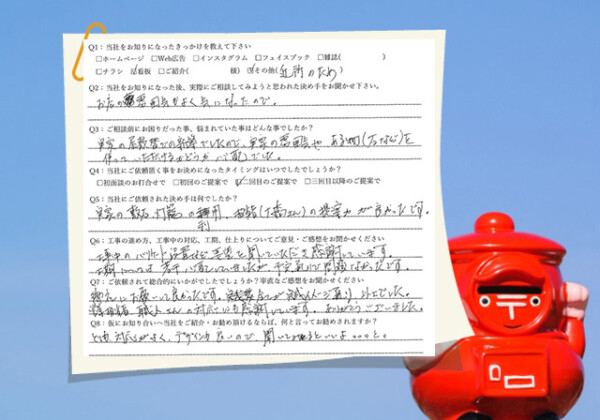 Q1：当社をお知りになったきっかけを教えて下さい
□ホームページ □Web広告 □インスタグラム □フェイスブック □雑誌( )
□チラシ ☑看板 □ご紹介( 様) ☑その他(近所のため)
Q2：当社をお知りになった後、実際にご相談してみようと思われた決め手をお聞かせ下さい。
お店の雰囲気がよく気になったので。
Q3：ご相談前にお困りだった事、悩まれていた事はどんな事でしたか？
実家の敷地での新築でしたので、実家の雰囲気や ある物(石など)を
使っていただけるかどうか 心配でした。
Q4：当社にご依頼頂く事をお決めになったタイミングはいつでしたでしょうか？
□初面談のお打合せで □初回のご提案で ☑二回目のご提案で □三回目以降のご提案で
Q5：当社にご依頼された決め手は何でしたか？
実家の敷石、灯籠の利用、担当の提案力が良かったです。
Q6：工事の進め方、工事中の対応、工期、仕上りについてご意見・ご感想をお聞かせください
工事中の 要望を聞いていただき感謝しています。
工期については 若干 心配していましたが、予定通りで問題なかったです。
Q7：ご依頼されて総合的にいかがでしたでしょうか？率直なご感想をお聞かせください
お願いして良かったです。 イメージ通り、以上でした。
担当者、職人さんの対応にも感謝しています。ありがとうございました。
Q8：仮にお知り合いへ当社をご紹介・お勧め頂けるならば、何と言ってお勧めされますか？
対応がよく、デザインも良いので、聞いてみるといいよ